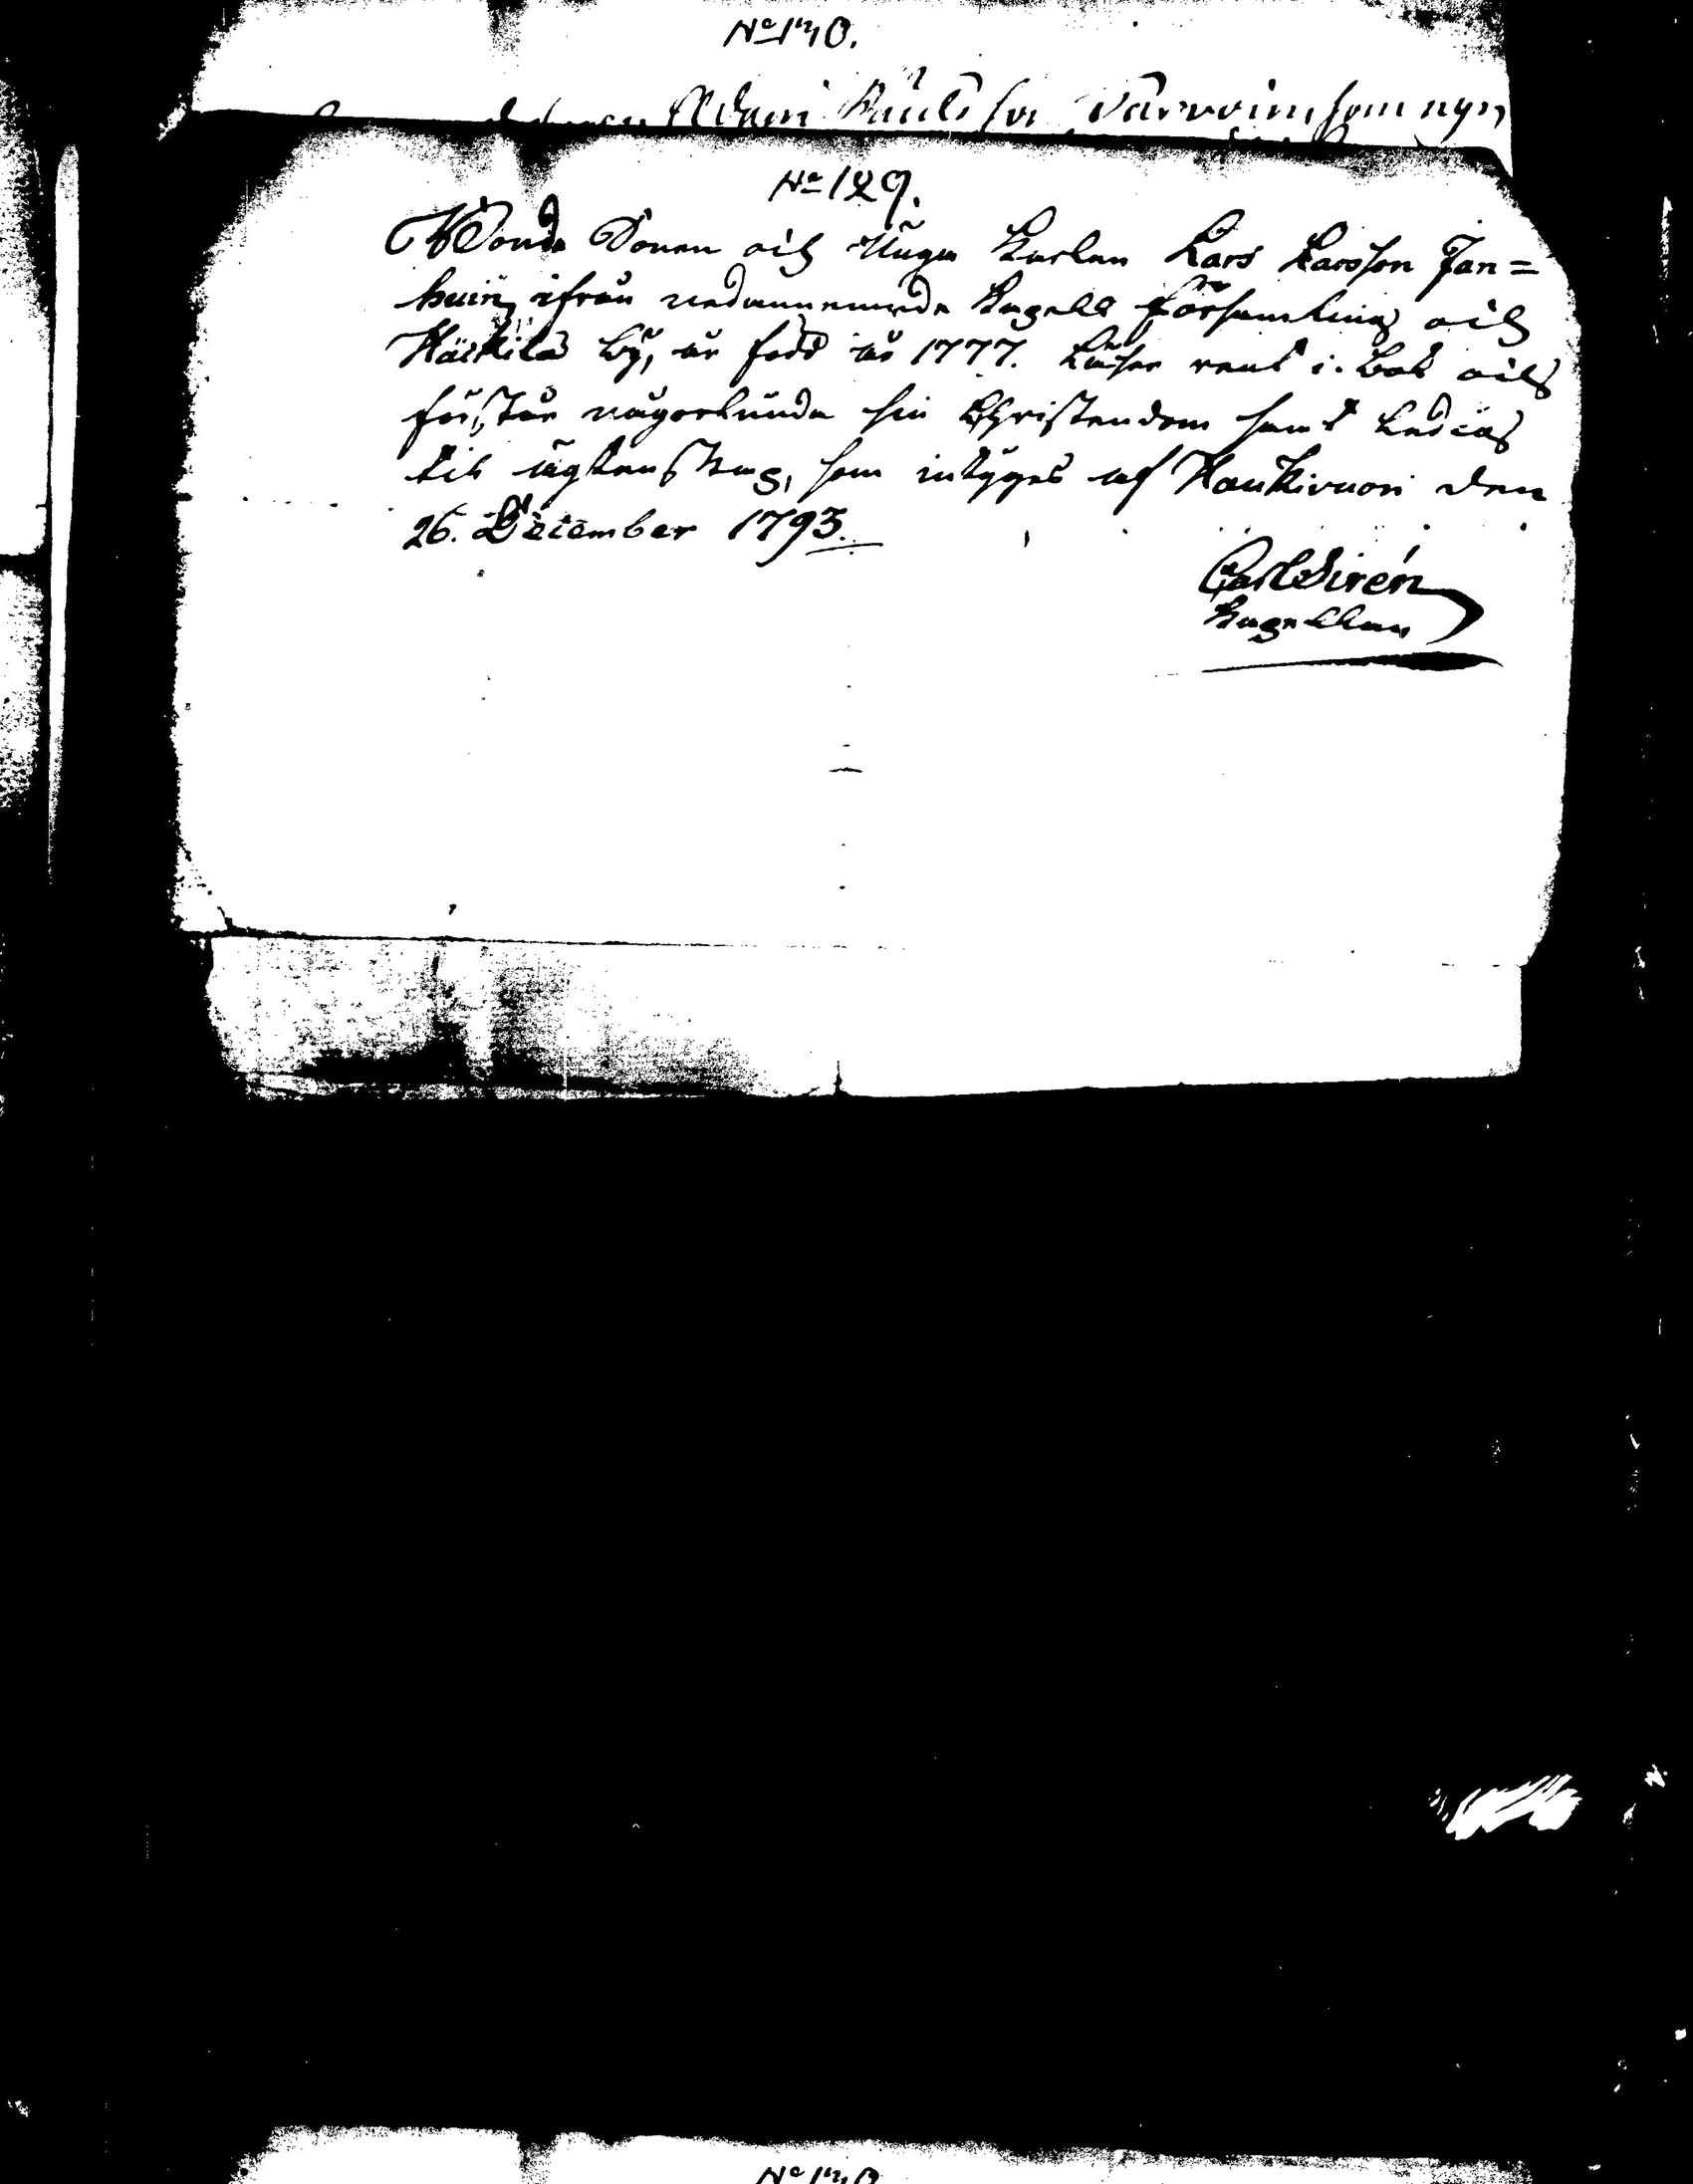 No 130.
Adam Påuls son Darvoin som nyn
No 129.
Bonde Sonen och Unga Karlen Lars Larsson Jan=
huin ifrån nedannemnde Capells Församling och
Häckilä by, är född år 1777. Läser rent i bok och
förstår någorlunda sin Christendom samt Ledig
till ägtenskap, som intyges af Haukivuori den
26. December 1793.
Carl Sirén
Kapellan
No 130